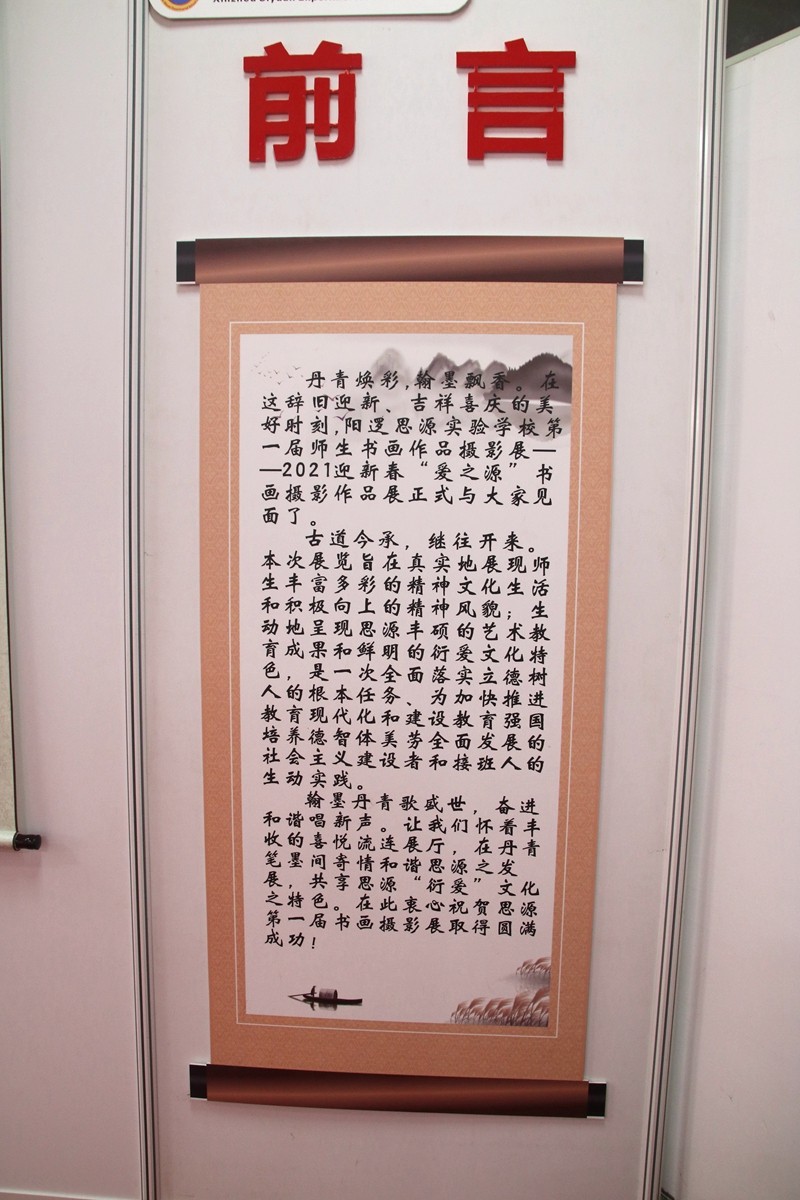 前言
丹青焕彩,翰墨飘香。在
这辞旧迎新、吉祥喜庆的美
好时刻,阳逻思源实验学校第
一届师生书画作品摄影展—
—2021迎新春“爱之源”书
画摄影作品展正式与大家见
面了。
古道今承，继往开来。
本次展览旨在真实地展现师
生丰富多彩的精神文化生活
和积极向上的精神风貌；生
动地呈现思源丰硕的艺术教
育成果和鲜明的衍爱文化特
色，是一次全面落实立德树
人的根本任务、为加快推进
教育现代化和建设教育强国
培养德智体美劳全面发展的
社会主义建设者和接班人的
生动实践。
翰墨丹青歌盛世，奋进
和谐唱新声。让我们怀着丰
收的喜悦流连展厅，在丹青
笔墨间寄情和谐思源之发
展，共享思源“衍爱”文化
之特色。在此衷心祝贺思源
第一届书画摄影展取得圆满
成功!